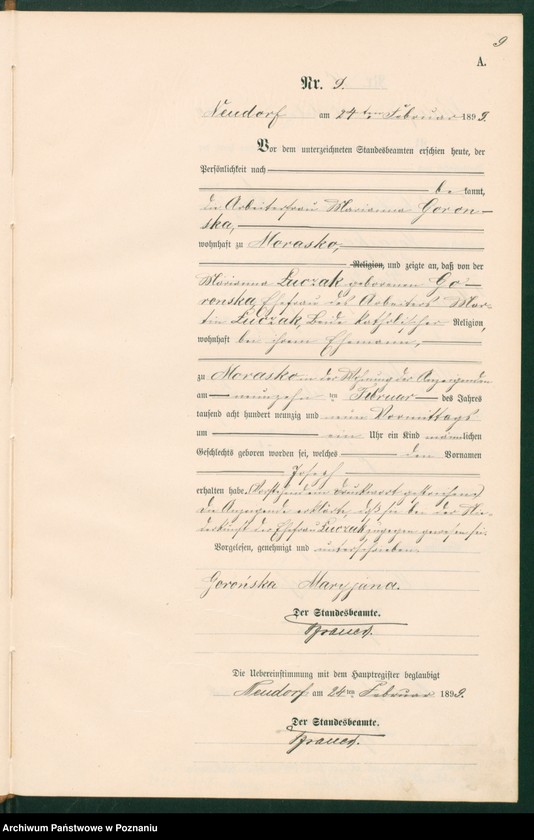 9
A.
Nr. 9.
Neudorf am 24ten Februar 1899.
Vor dem unterzeichneten Standesbeamten erschien heute, der
Persönlichkeit nach
be kannt,
die Arbeiterfrau Marianna Goron-
ska,
wohnhaft zu Morasko,
Religion, und zeigte an, daß von der
Marianna Luczak geborenen Go-
ronska, Ehefrau des Arbeiters Mar-
tin Luczak, beide katholischer Religion,
wohnhaft bei ihrem Ehemann,
zu Morasko in der Wohnung der Anzeigenden
am neunzehn ten Februar des Jahres
tausend acht hundert neunzig und neun Vormittags
um ein Uhr ein Kind männlichen
Geschlechts geboren worden sei, welches den Vornamen
Joseph
erhalten habe. (Vorstehend ein Druckwort gestrichen)
die Anzeigende erklärte, daß sie bei der Nie-
derkunft der Ehefrau Luczak zugegen gewesen sei.
Vorgelesen, genehmigt und unterschrieben
Gorońska Maryjana.
Der Standesbeamte.
Die Uebereinstimmung mit dem Hauptregister beglaubigt
Neudorf am 24ten Februar 1899.
Der Standesbeamte.
Archiwum Państwowe w Poznaniu